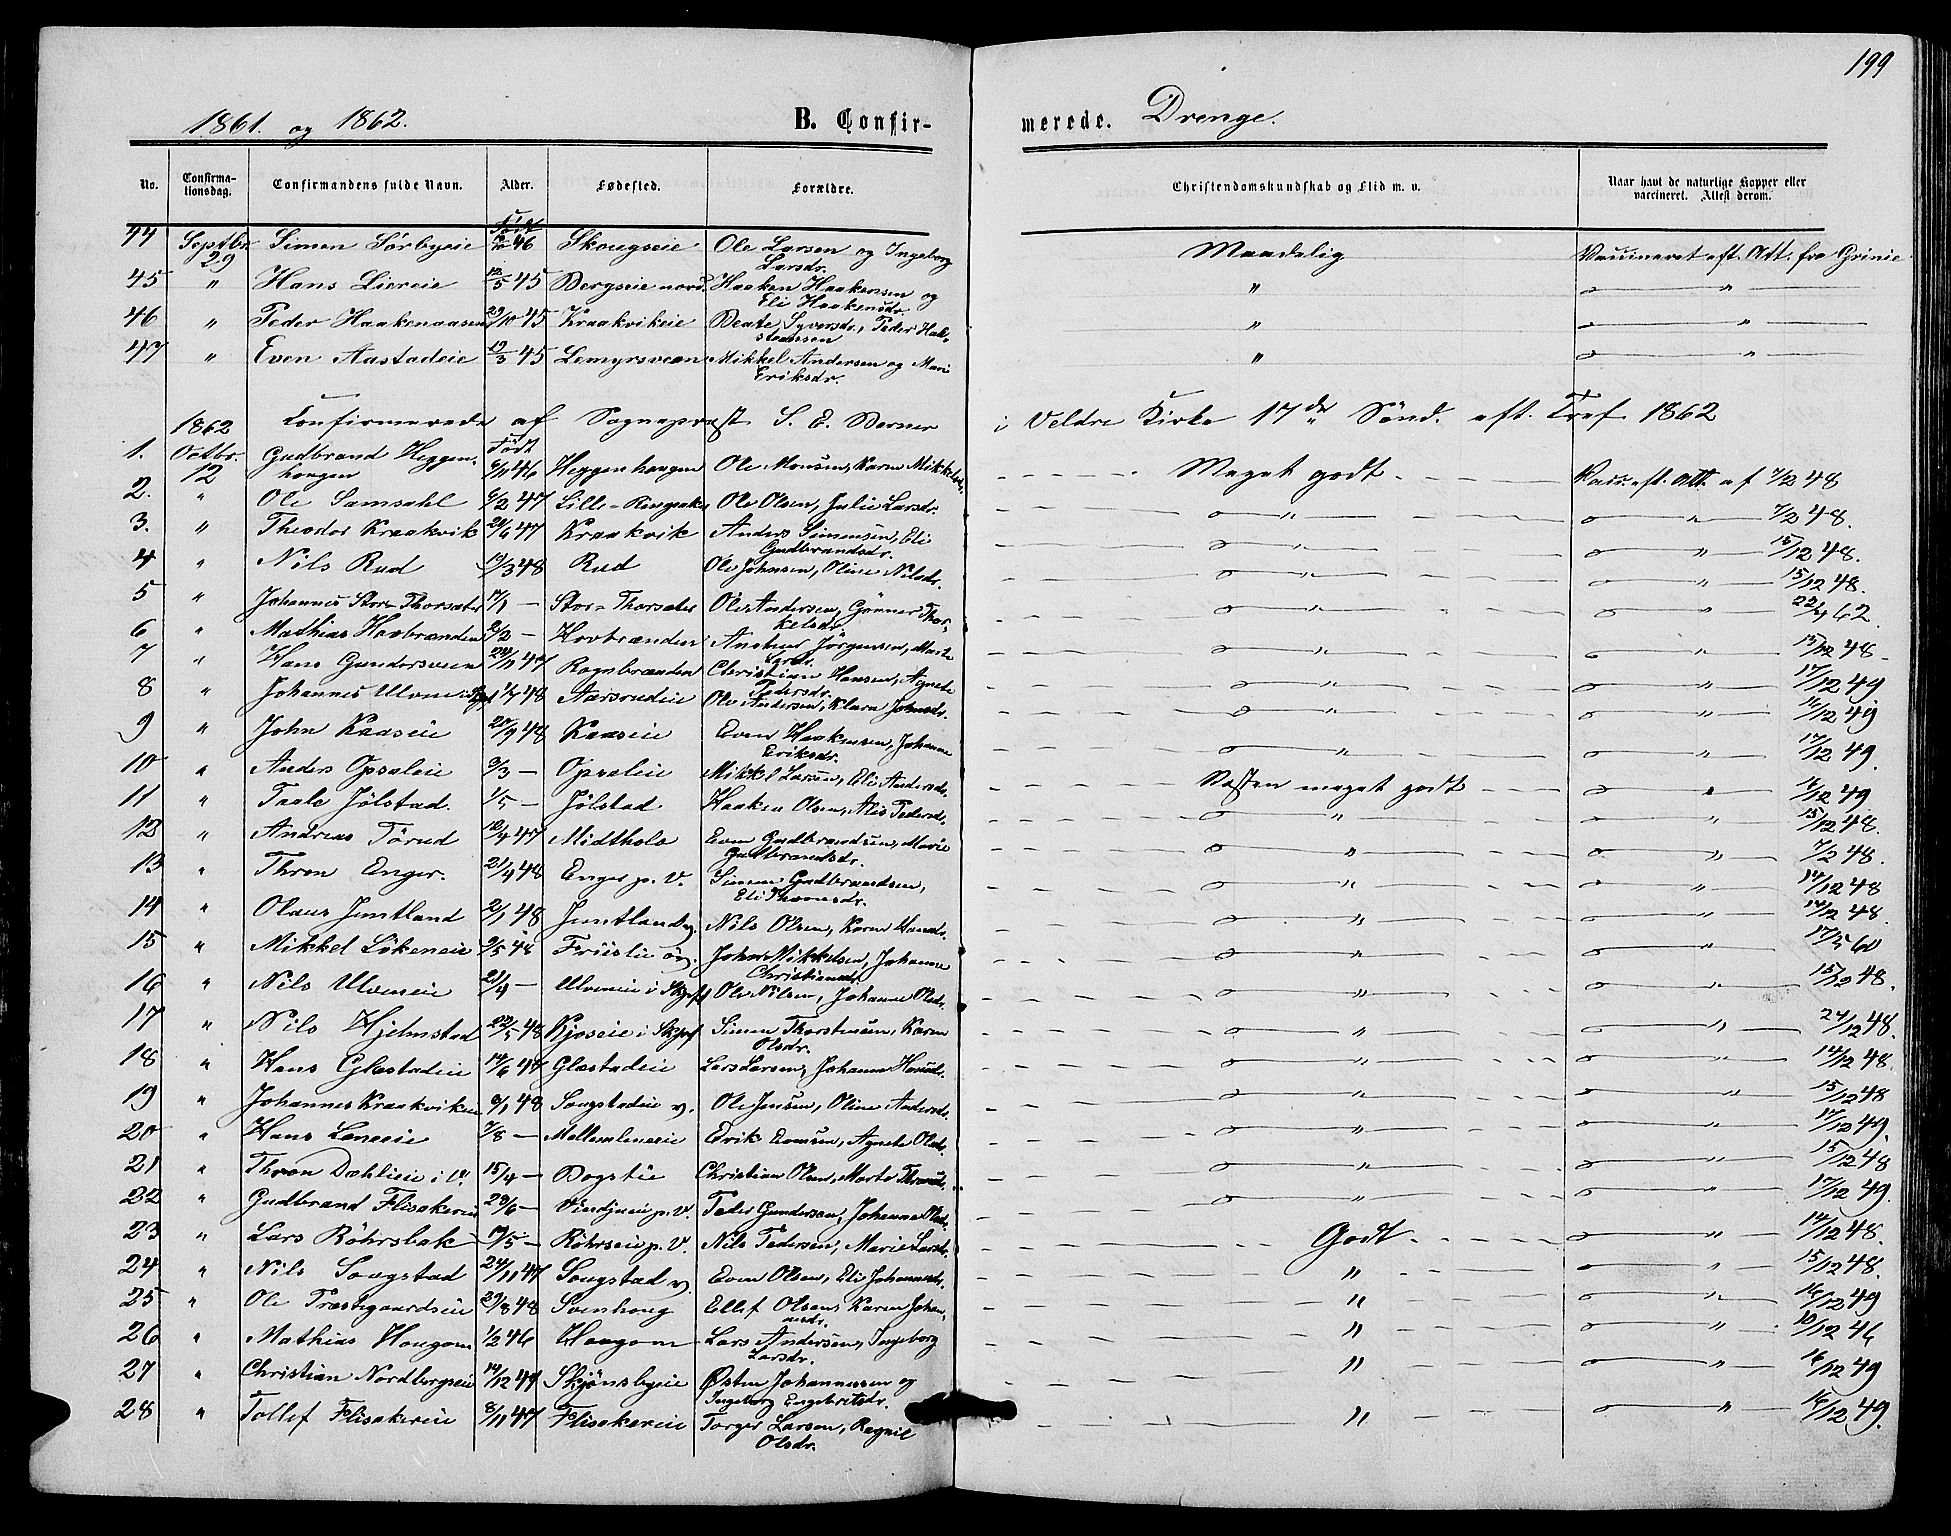 199
1861. og 1862. B. Confir- merede. Drenge.
No. Confirma-tionsdag. Confirmandens fulde Navn. Alder. Fødested. Forældre. Christendomskundskab og Flid m. v. Naar havt de naturlige Kopper eller vaccineret. Attest derom.
44 Septbr. 29 Simen Sörbyeie Född 46 Skougseie Ole Larsen og Ingeborg Larsdr. Maadelig Vaccineret eft. Att. fra Grinie
45 " Hans Liereie 12/5 45 Bergseie nord. Haaken Haakensen og Eli Haakensdr. " "
46 " Peder Haakenaasen 29/10 45 Kraakvikeie Beate Syversdr., Peder Hal-stensen " "
47 " Even Aastadeie 19/3 45 Lemyrsveen Mikkel Andersen og Mari Eriksdr. " "
1862 Konfirmerede af Sognepræst S. E. Berner i Veldre Kirke 17de Sönd. eft. Tref. 1862
1. Octbr. 12 Gudbrand Heggen-hougen Född 6/11 46 Heggenhougen Ole Monsen, Karen Mikkelsdr. Meget godt Vacc. eft. Att. af 7/2 48
2. " Ole Samsahl 6/2 47 Lille-Ringsaker Ole Olsen, Julie Larsdr. " " 7/2 48.
3. " Theodor Kraakvik 28/6 47 Kraakvik Anders Simensen, Eli Gudbrandsdr. " " 15/12 48.
4 " Nils Rud 13/3 48 Rud Ole Johnsen, Oline Nilsdr. " " 15/12 48.
5 " Johannes Stor-Thorsæter 17/1 — Stor-Thorsæter Ole Andersen, Gönner Thor-kelsdr. " " 22/4 62.
6 " Mathias Hovbrænden 2/2 — Hovbrænden Anders Jörgensen, Marte Larsdr. " " 15/12 48
7 " Hans Gundersveen 24/11 47 Rognbrænden Christian Hansen, Agnete Pedersdr. " " 17/12 49
8 " Johannes Ulven 1/7 48 Aarsrudeie Ole Andersen, Klara Johnsdr. " " 16/12 49
9 " John Kaaseie 28/9 48 Kaaseie Even Haakensen, Johanne Eriksdr. " " 17/12 49.
10 " Anders Opsaleie 9/3 — Opsaleie Mikkel Larsen, Eli Andersdr. Næsten meget godt " 16/12 49
11 " Taale Jölstad. 1/5 — Jölstad Haaken Olsen, Alis Pedersdr. " " 15/12 48.
12 " Andreas Törud 18/4 47 Midtholo Even Gudbrandsen, Marie Gudbrandsdr. " " 7/2 48.
13 " Thron Enger. 21/4 48 Enger p. V. Simen Gudbrandsen, Eli Thronsdr. " " 14/12 48
14 " Olaus Jemtland 21/1 48 Jemtland Nils Olsen, Karen Hansdr. " " 14/12 48.
15 " Mikkel Lökeneie 9/5 48 Friislie ög. John Mikkelsen, Johanne Christiansdr. " " 17/5 60
16 " Nils Ulveneie 21/4 — Ulveneie i Skjef. Ole Nilsen, Johanne Olsdr. " " 15/12 48.
17 " Nils Hjelmstad 22/5 48 Kjoseie i Skjef. Simen Thorstensen, Karen Olsdr. " " 24/12 48.
18 " Hans Glæstadeie 14/6 48 Glæstadeie Lars Larsen, Johanne Hansdr. " " 14/12 48.
19 " Johannes Kraakvikeie 6/1 48 Sougstadeie v. Ole Jensen, Oline Andersdr. " " 15/12 48
20 " Hans Leneeie 7/8 — Mellemleneeie Erik Evensen, Agnete Olsdr. " " 17/12 49.
21 " Thron Dæhlieie i V. 15/4 — Bogstie Christian Olsen, Marte Thronsdr. " " 15/12 48
22 " Gudbrand Flisakereie 23/6 — Vindjueie p. V. Peder Gundersen, Johanne Olsdr. " " 17/12 49.
23 " Lars Röhrsbak 19/5 — Röhrseie p. V. Nils Pedersen, Marie Larsdr. Godt " 14/12 48.
24 " Nils Sougstad 24/11 47 Sougstad v. Even Olsen, Eli Johannesdr. " " 15/12 48.
25 " Ole Præstegaardseie 29/8 48 Svenhoug Ellef Olsen, Karen Johan-nesdr. " " 16/12 49
26 " Mathias Hougom 1/2 46 Hougom Lars Andersen, Ingeborg Larsdr. " " 10/12 46
27 " Christian Nordbergseie 14/12 47 Skjönsbyeie Østen Johannessen og Ingeborg Engebretsdr. " " 16/12 49
28 " Tollef Flisakereie 8/11 47 Flisakereie Torger Larsen, Ragnil Olsdr. " " 16/12 49.